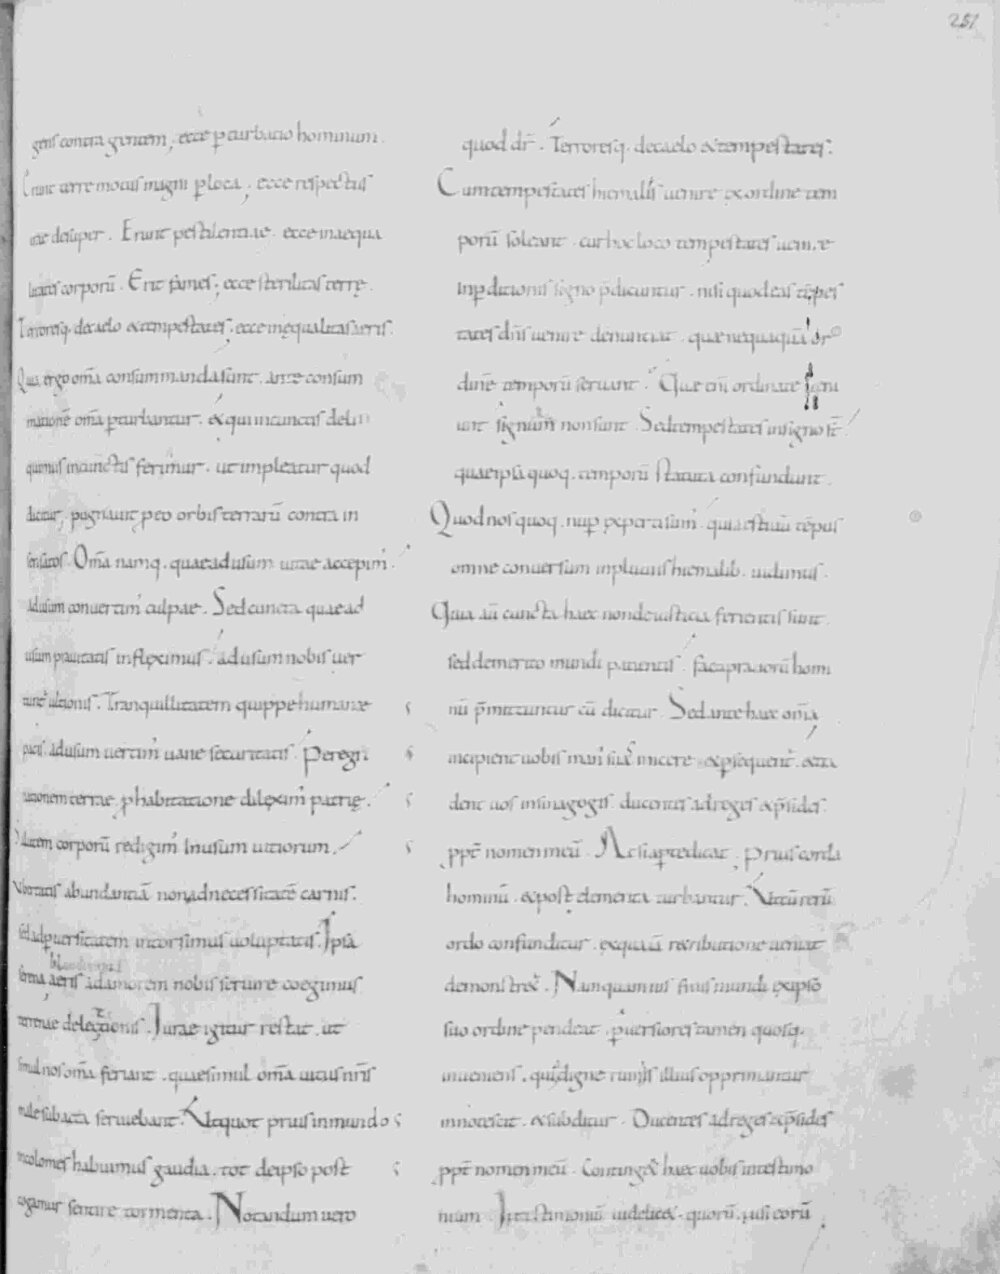 251
gens contra gentem, ecce perturbatio hominum.
Erunt terre motus magni p̱ loca, ecce respectus
irae desuper. Erunt pestilentiae. ecce inaequa
litatis corporū. Erit fames; ecce sterilitas terrę.
Terroresq· decaelo &tempestates; ecce inęqualitas aeris.
Quia ergo om̄a consummanda sunt. ante consum
mationē om̄a p̱turbantur. &qui in cunctis deli
quimus in cunctis ferimur. ut impleatur quod
dicitur, pugnauit p eo orbis terrarū contra in
sensatos. Om̄a namq· quae ad usum uitae accepim'.
ad usum conuertim' culpae. Sed cuncta quae ad
usum prauitatis infleximus. ad usum nobis uer
tunt' ultionis. Tranquillitatem quippe humanae
pacis. ad usum uertim' uane securitatis. Peregri
nationem terrae, p habitatione dileximˈ patrię.
Salutem corporū redigim' Inusum uitiorum.
Vbertatis abundantiā non ad necessitatē carnis.
sed ad puersitatem intorsimus uoluptatis. Ipsa
serena blandimenta aeris ad amorem nobis seruire coegimus
terrenae delectationis. Iurae igitur restat. ut
simul nos om̄a feriant. quae simul om̄a uitiis nr̄is
male subacta seruiebant. Vtquot prius in mundo
incolomes habuimus gaudia. tot deipso post
cogamur sentire tormenta. Notandum uero
quod dr̄. Terroresq· decaelo &tempestates.
Cum tempestates hiemalis uenire ex ordine tem
porū soleant. cur hoc loco tempestates uenire
Inp̱ditionis signo p̄dicuntur. nisi quod eas tēpes
tates dn̄s uenire denunciat. quae nequaquā or
dinē temporū seruant. Quae eni ordinate ueni
unt signum non sunt. Sed tempestates in signo st̄.
quae ipsa quoq· temporū statuta confundunt.
Quod nos quoq· nup̱ experti sum'. quia estiuū tēpus
omne conuersum inpluuiis hiemalib· uidimus.
Quia aū cuncta haec non de iusticia ferientis sunt.
sed de merito mundi patientis. facta prauorū homi
nū p̄mittuntur cū dicitur. Sed ante haec om̄a
incipient uobis man' suas inicere &p̱sequent'. &tra
dent uos in sinagogis ducentes ad reges &p̄sides.
ppt̄ nomen meū. Ac si ap̱te dicat, Prius corda
hominū. &post elementa turbantur. Vt cū rerū
ordo confunditur. exqua iā retributione ueniat
demonstret'. Nam quamuis finis mundi ex ipso
suo ordine pendeat. p̱uersiores tamen quosq·
inueniens. qui digne ruinis illius opprimantur
innotescit. &subditur. Ducentes ad reges &p̄sides
ppt̄ nomen meū. Continget haec uobis in testimo
nium In testimoniū uidelicet. quorū. nisi eorū